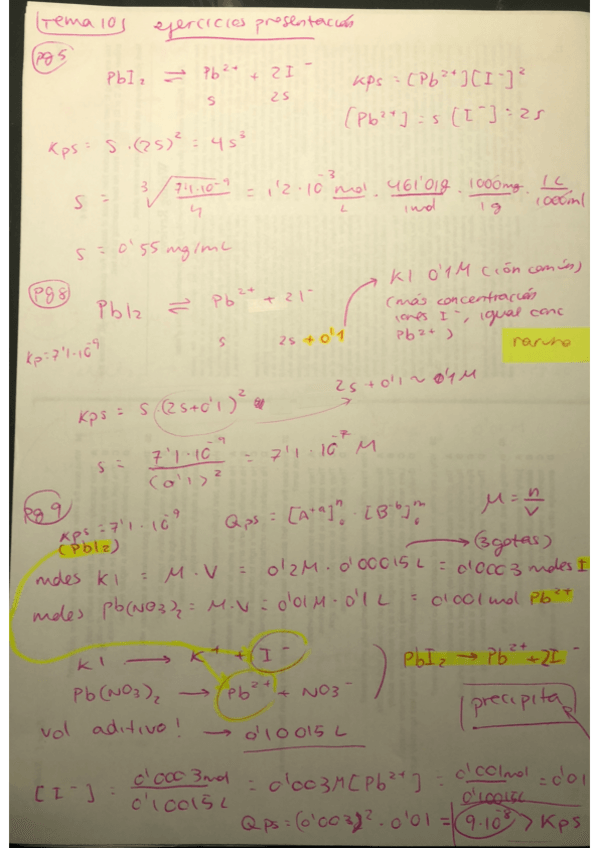 Tema 10 ejercicios presentación
pg 5
PbI₂ ⇌ Pb²⁺ + 2I⁻ Kps = [Pb²⁺][I⁻]²
s 2s [Pb²⁺] = s [I⁻] = 2s
Kps = s · (2s)² = 4s³
s = ∛(7'1·10⁻⁹ / 4) = 1'2·10⁻³ mol/L · 461'01g/1mol · 1000mg/1g · 1L/1000ml
s = 0'55 mg/mL
pg 8
KI 0'1M (ión común)
PbI₂ ⇌ Pb²⁺ + 2I⁻ (más concentración
iones I⁻, igual conc
s 2s + 0'1 Pb²⁺)
Kp = 7'1·10⁻⁹
2s + 0'1 ~ 0'1M
Kps = s · (2s+0'1)²
s = 7'1·10⁻⁹ / (0'1)² = 7'1·10⁻⁷ M
pg 9
Kps = 7'1·10⁻⁹ Qps = [A⁺ᵃ]ₒⁿ · [B⁻ᵇ]ₒᵐ M = n/V
(PbI₂) (3 gotas)
moles KI = M · V = 0'2M · 0'00015 L = 0'0003 moles I
moles Pb(NO₃)₂ = M·V = 0'01M · 0'1 L = 0'001 mol Pb²⁺
KI → K⁺ + I⁻ PbI₂ → Pb²⁺ + 2I⁻
Pb(NO₃)₂ → Pb²⁺ + NO₃⁻ precipita
vol aditivo! → 0'10015 L
[I⁻] = 0'0003mol / 0'10015L = 0'003M [Pb²⁺] = 0'001mol / 0'10015L = 0'01
Qps = (0'003)² · 0'01 = 9·10⁻⁸ > Kps